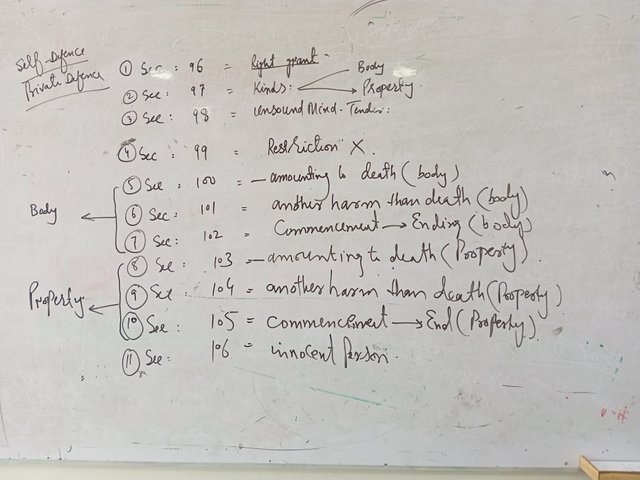 Self Defence
Private Defence
① Sec : 96 = Right grant -
② See : 97 = Kinds: Body
Property.
③ See : 98 = Unsound Mind. Tender.
④ Sec 99 = Restriction X.
⑤ See : 100 = - amounting to death (body)
Body
⑥ Sec: 101 = another harm than death (body)
⑦ See: 102 = Commencement → Ending (body)
⑧ See : 103 = - amounting to death (Property).
Property
⑨ See : 104 = another harm than death (Property)
⑩ See : 105 = commencement → End (Property).
⑪ See : 106 = innocent Person.